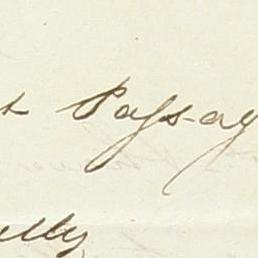 Passag
lly